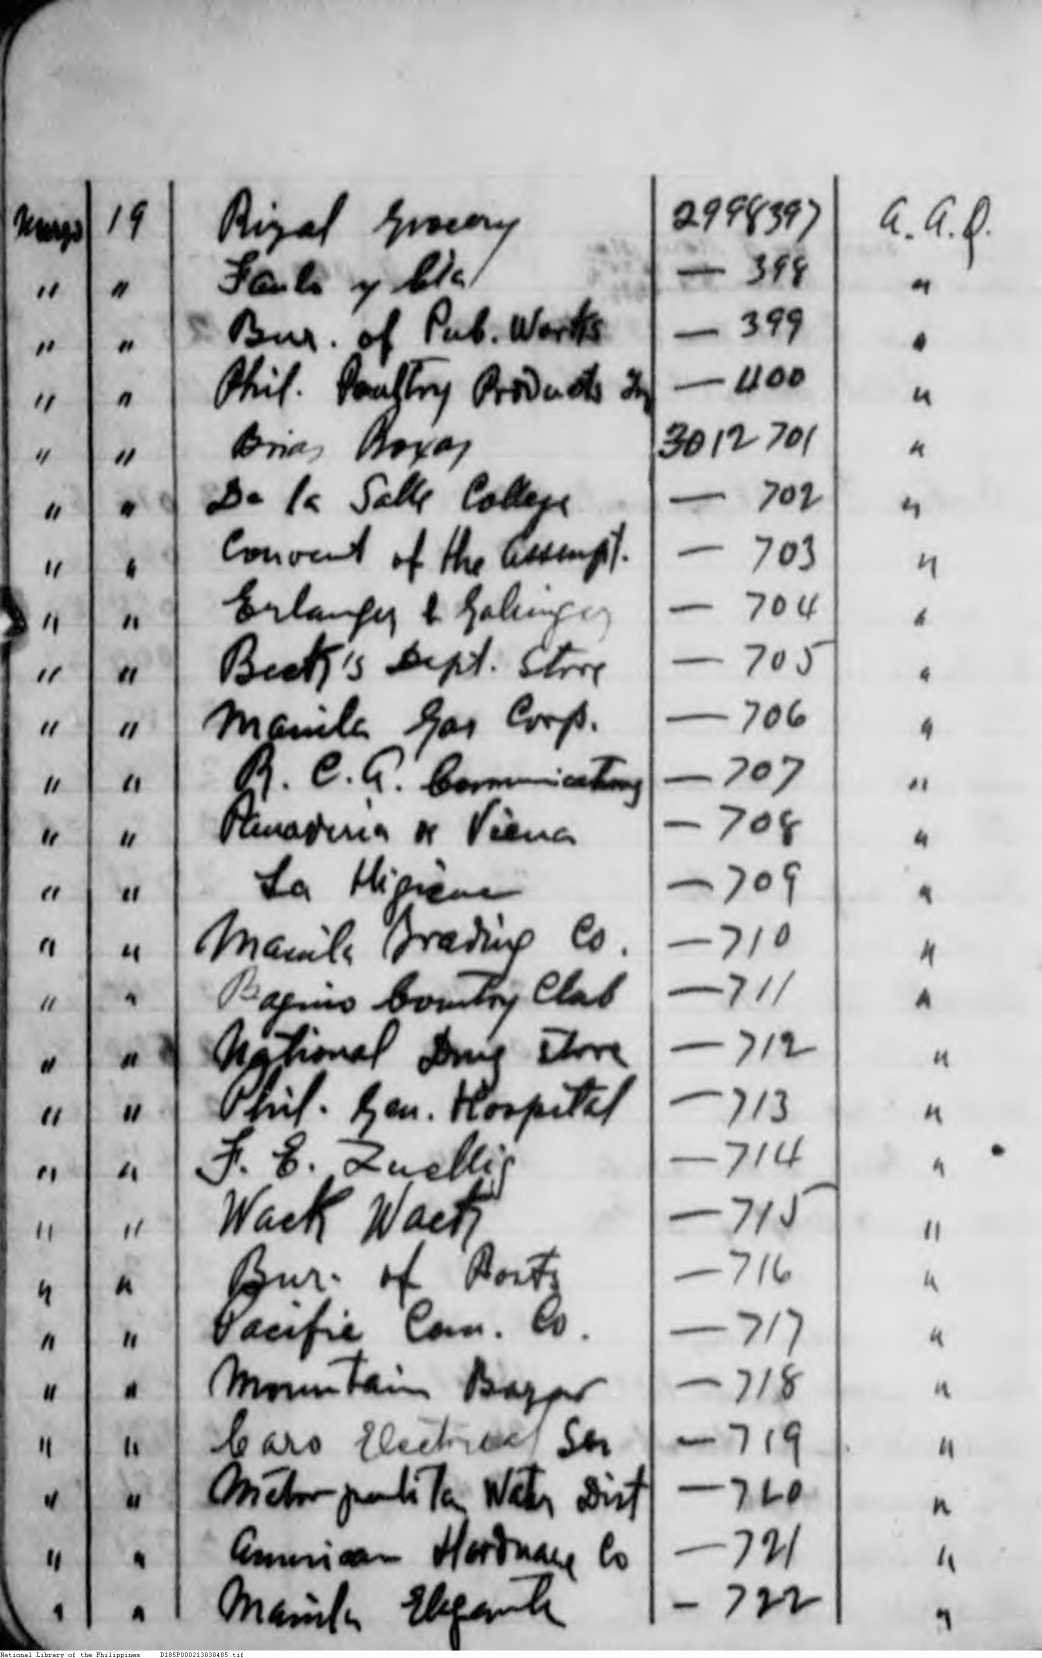 Marzo 19 Rizal Grocery 2998397 A.A.Q.
" " y Cia — 398 "
" " Bur. of Pub. Works — 399 "
" " Phil. Poultry Products — 400 "
" " Roxas 3012701 "
" " De la Salle College — 702 "
" " Convent of the Assumpt. — 703 "
" " Erlanger & Galinger — 704 "
" " Beck's Dept. Store — 705 "
" " Manila Gas Corp. — 706 "
" " R.C.A. Communications — 707 "
" " Panaderia de Viena — 708 "
" " La Higiene — 709 "
" " Manila Trading Co. — 710 "
" " Baguio Country Club — 711 "
" " National Drug Store — 712 "
" " Phil. Gen. Hospital — 713 "
" " F. E. Zuellig — 714 "
" " Wack Wack — 715 "
" " Bur. of Posts — 716 "
" " Pacific Com. Co. — 717 "
" " Mountain Bazar — 718 "
" " Caro Electrical Ser — 719 "
" " Metropolitan Water Dist — 720 "
" " American Hardware Co — 721 "
" " Manila Elegante — 722 "
National Library of the Philippines D185P000213838485.tif